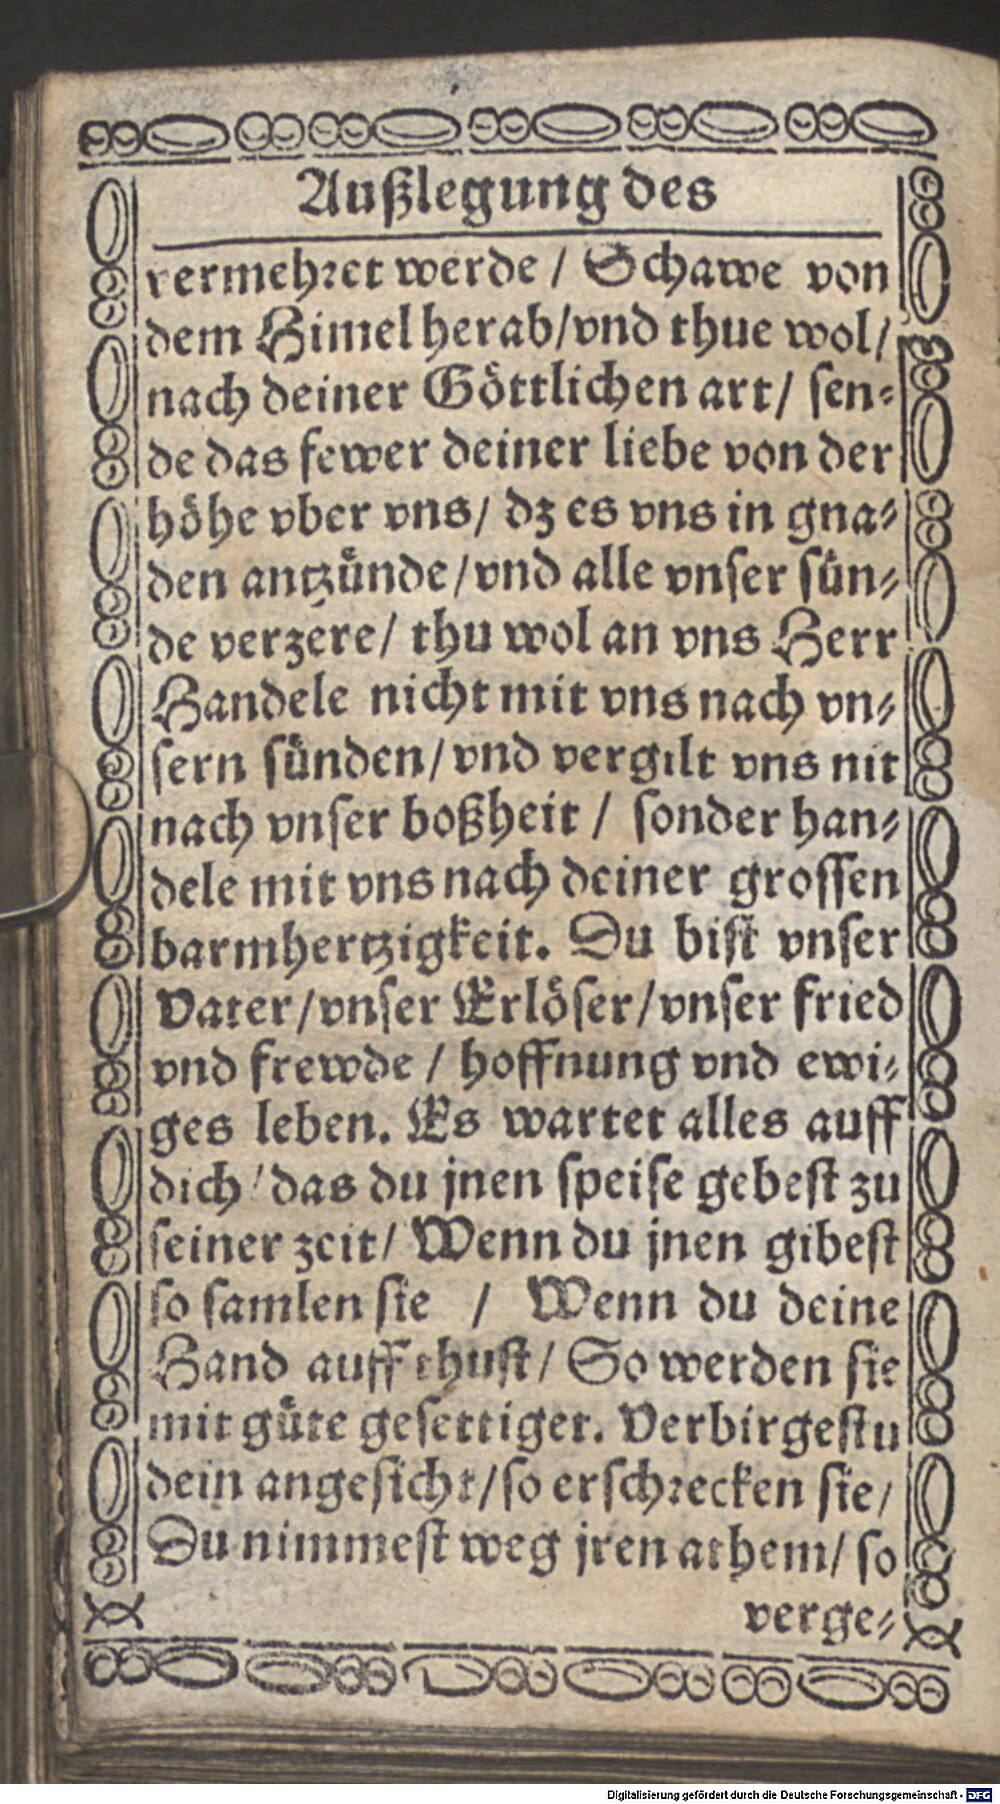 Außlegung des
vermehret werde / Schawe von
dem Himel herab/vnd thue wol/
nach deiner Göttlichen art/ sen⸗
de das fewer deiner liebe von der
höhe vber vns/ dz es vns in gna⸗
den antzünde/vnd alle vnser sün⸗
de verzere/ thu wol an vns Herr
Handele nicht mit vns nach vn⸗
sern sünden/vnd vergilt vns nit
nach vnser boßheit / sonder han⸗
dele mit vns nach deiner grossen
barmhertzigkeit. Du bist vnser
Vater/vnser Erlöser/vnser fried
vnd frewde / hoffnung vnd ewi⸗
ges leben. Es wartet alles auff
dich/das du jnen speise gebest zu
seiner zeit/ Wenn du jnen gibest
so samlen sie / Wenn du deine
Hand auff thust/ So werden sie
mit güte gesettiget. Verbirgestu
dein angesicht/so erschrecken sie/
Du nimmest weg jren athem/ so
verge⸗
Digitalisierung gefördert durch die Deutsche Forschungsgemeinschaft - DFG